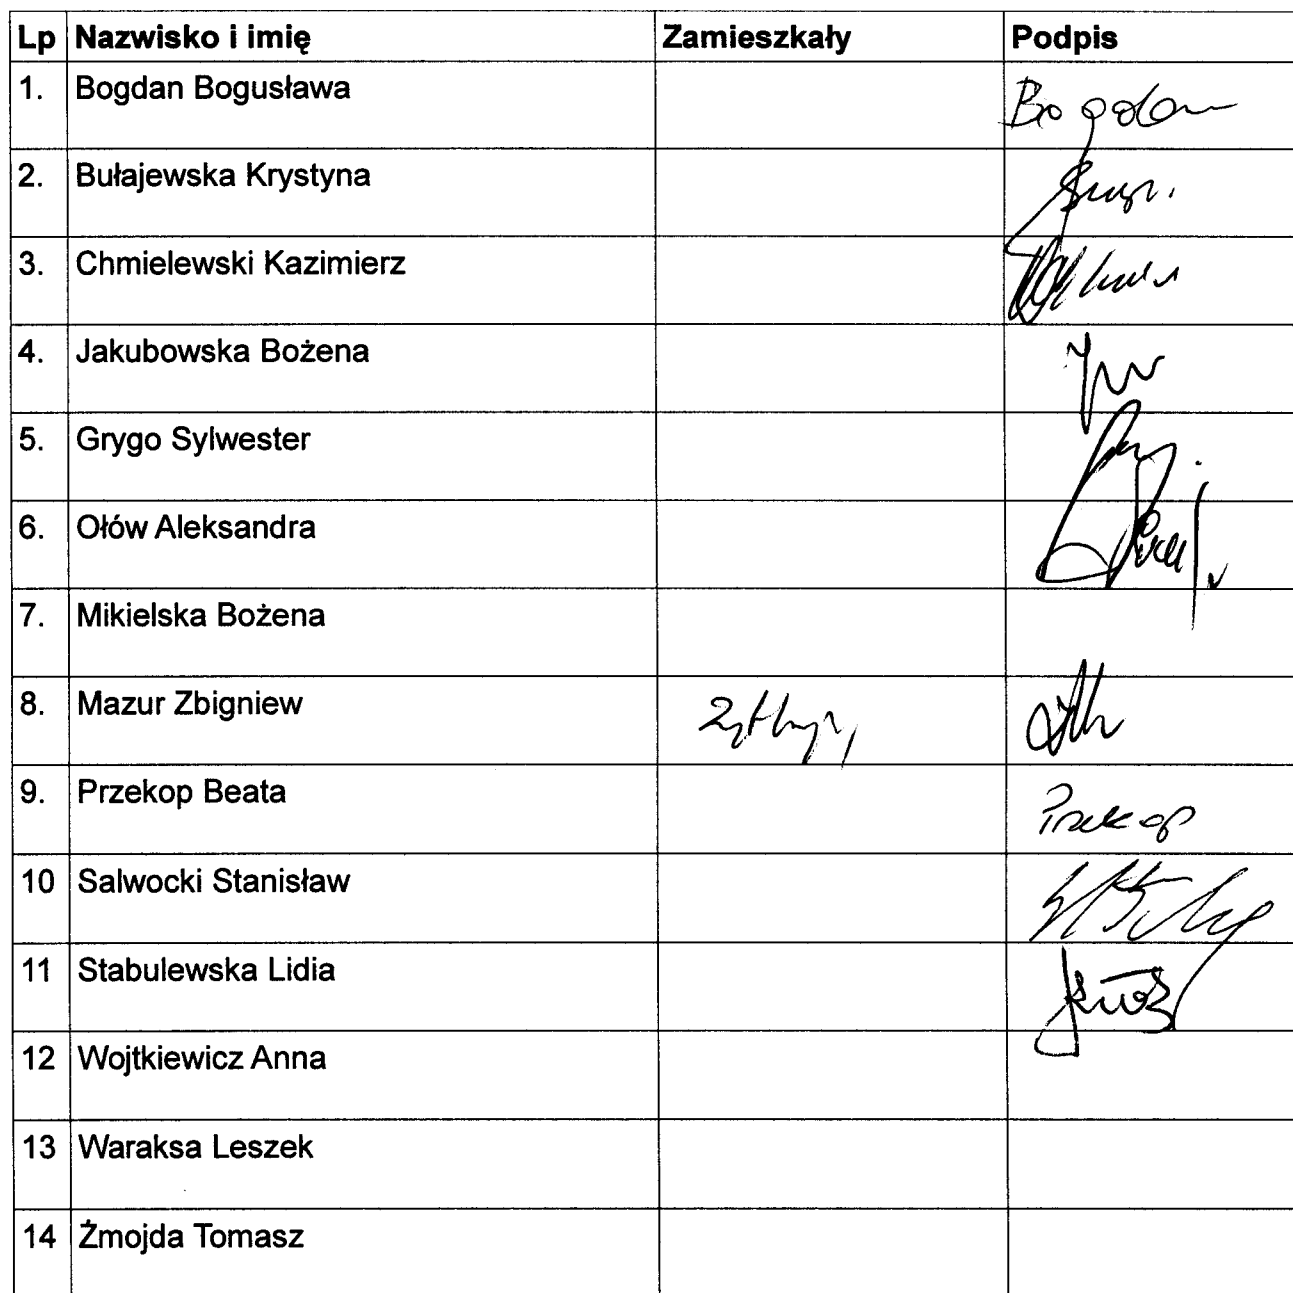 Lp Nazwisko i imię Zamieszkały Podpis
1. Bogdan Bogusława Bogdan
2. Bułajewska Krystyna
3. Chmielewski Kazimierz
4. Jakubowska Bożena
5. Grygo Sylwester
6. Ołów Aleksandra
7. Mikielska Bożena
8. Mazur Zbigniew
9. Przekop Beata Przekop
10 Salwocki Stanisław
11 Stabulewska Lidia
12 Wojtkiewicz Anna
13 Waraksa Leszek
14 Żmojda Tomasz